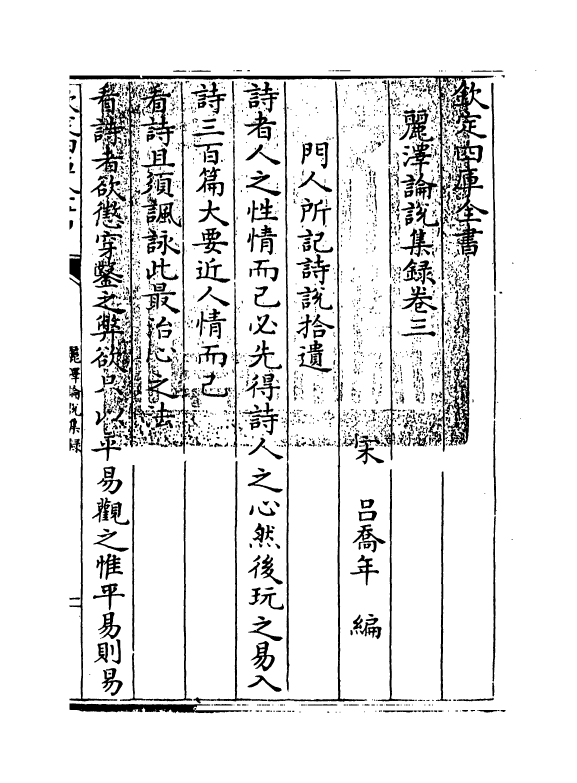 欽定四庫全書
麗澤論說集録卷三
宋　呂喬年　編
門人所記詩說拾遺
詩者人之性情而已必先得詩人之心然後玩之易入
詩三百篇大要近人情而已
看詩且須諷詠此最治心之法
看詩者欲懲穿鑿之弊欲只以平易觀之惟平易則易
麗澤論說集録